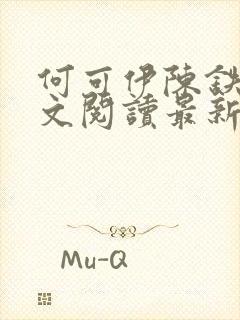 何可伊陳鉄
文閱讀最新
Mu-Q